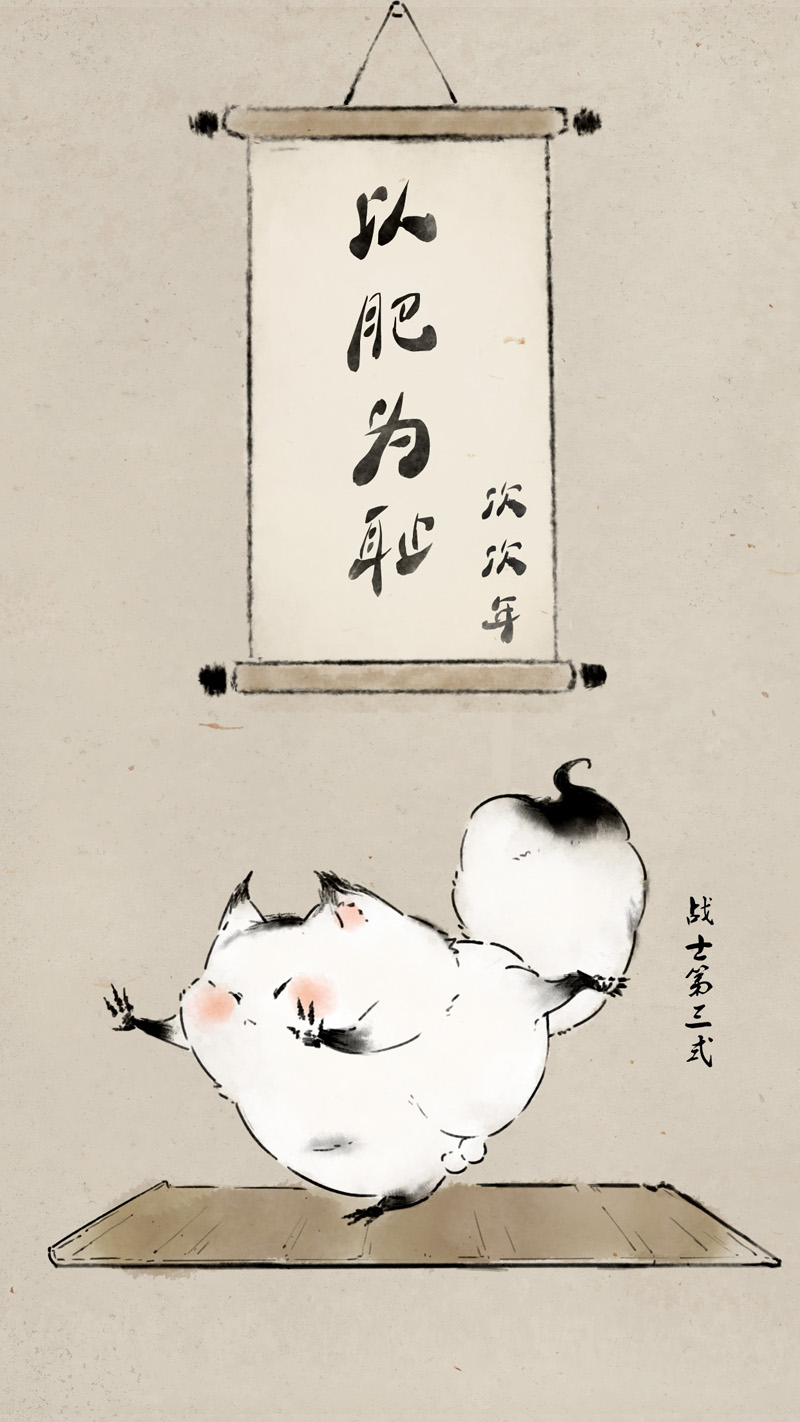 以肥为耻
次次年
战士第三式